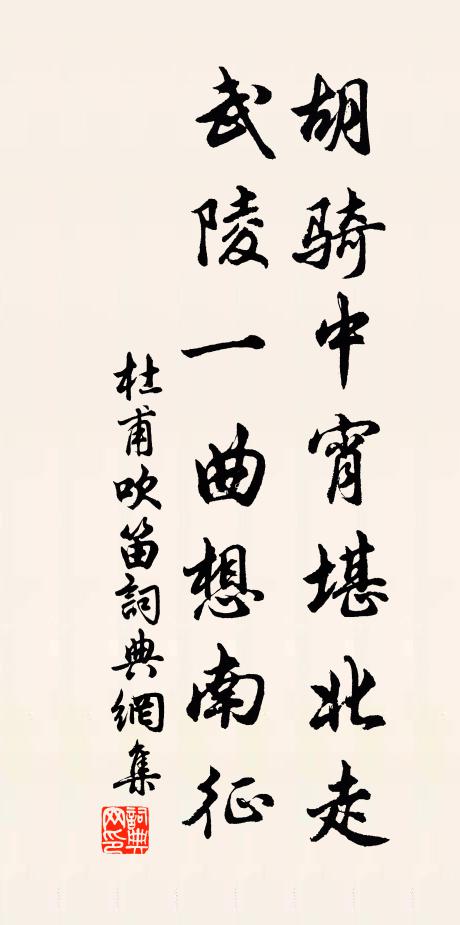 胡騎中宵堪北走
武陵一曲想南征
杜甫吹笛詞典網集
詞典網印